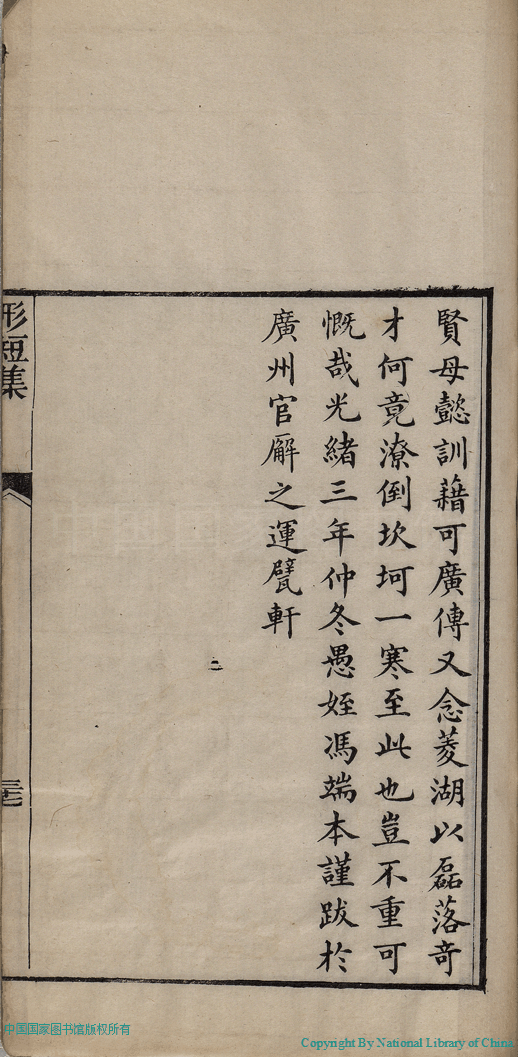 賢母懿訓藉可廣傳又念菱湖以磊落奇
才何竟潦倒坎坷一寒至此也豈不重可
慨哉光緒三年仲冬愚姪馮端本謹跋於
廣州官廨之運甓軒
形短集
三七
中国国家图书馆版权所有
Copyright By National Library of China.